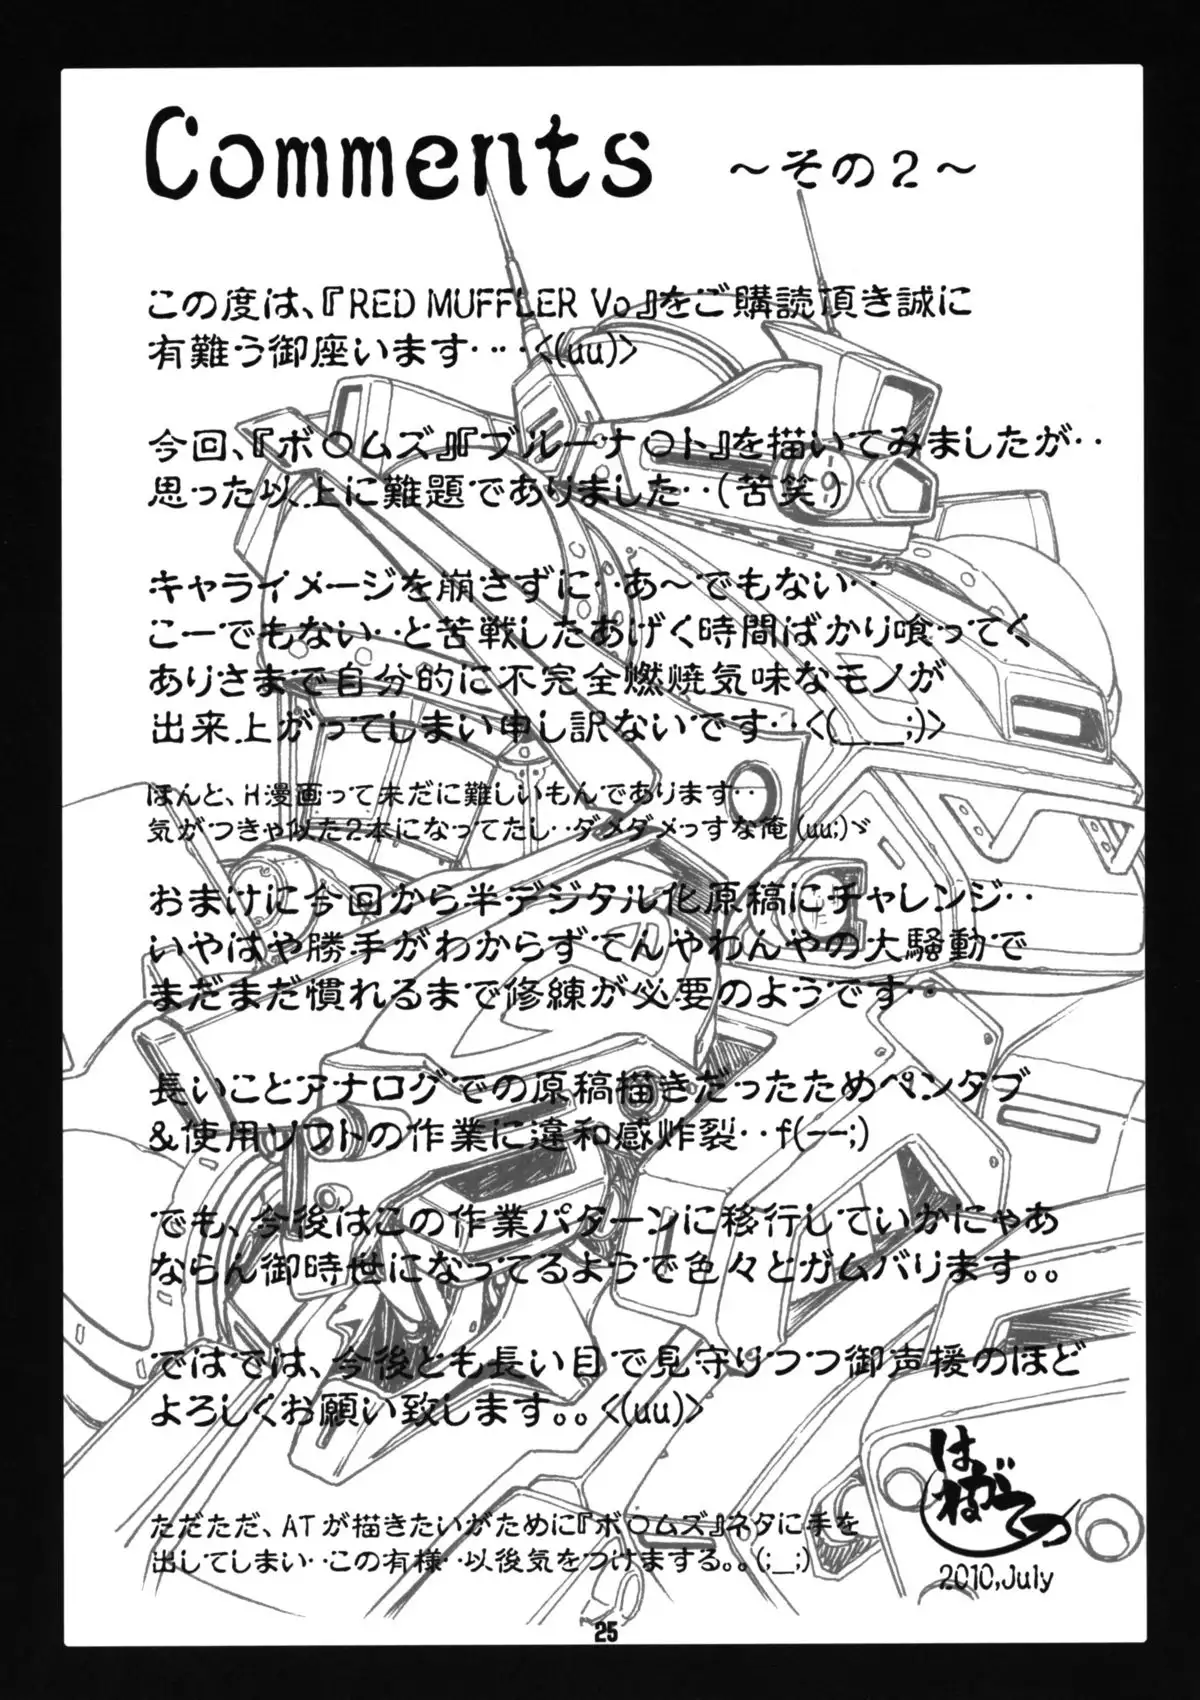 Comments ～その２～
この度は、『RED MUFFLER Vo』をご購読頂き誠に
有難う御座います‥‥<(uu)>
今回、『ボ〇ムズ』『ブルーナ〇ト』を描いてみましたが‥
思った以上に難題でありました‥(苦笑)
キャライメージを崩さずに‥あ～でもない‥
こーでもない‥と苦戦したあげく時間ばかり喰ってく
ありさまで自分的に不完全燃焼気味なモノが
出来上がってしまい申し訳ないです‥<(__;)>
ほんと、H漫画って未だに難しいもんであります‥
気がつきゃ似た2本になってたし‥ダメダメっすな俺(uu;)ヾ
おまけに今回から半デジタル化原稿にチャレンジ‥
いやはや勝手がわからずてんやわんやの大騒動で
まだまだ慣れるまで修練が必要のようです‥
長いことアナログでの原稿描きだったためペンタブ
&使用ソフトの作業に違和感炸裂‥f(--;)
でも、今後はこの作業パターンに移行していかにゃあ
ならん御時世になってるようで色々とガムバリます｡｡
ではでは、今後とも長い目で見守りつつ御声援のほど
よろしくお願い致します｡｡<(uu)>
はねがらての
2010,July
ただただ、ATが描きたいがために『ボ〇ムズ』ネタに手を
出してしまい‥この有様‥以後気をつけまする｡｡(;_;)
25